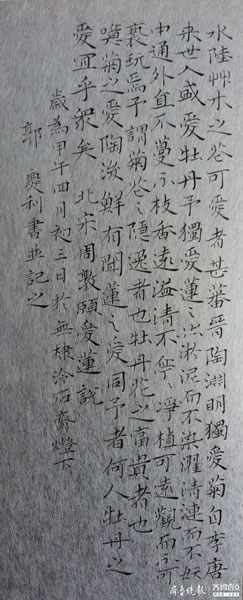 水陸艸木之花可愛者甚蕃晉陶淵明獨愛菊自李唐
來世人盛愛牡丹予獨愛蓮之出淤泥而不染濯清漣而不妖
中通外直不蔓不枝香遠溢清亭〻淨植可遠觀而不可
褻玩焉予謂菊花之隱逸者也牡丹花之富貴者也
噫菊之愛陶後鮮有聞蓮之愛同予者何人牡丹之
愛宜乎眾矣 北宋周敦頤愛蓮說
歲為甲午四月初三日於無棣冷石齋燈下
郭慶利書並記之
齐鲁晚报 齐鲁壹点